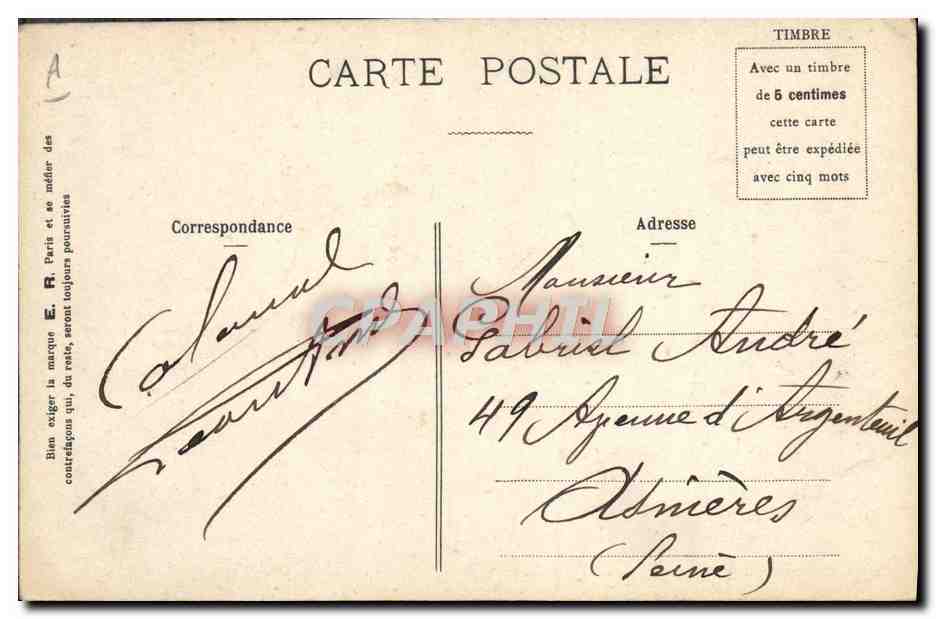 A
CARTE POSTALE
TIMBRE
Avec un timbre
de 5 centimes
cette carte
peut être expédiée
avec cinq mots
Bien exiger la marque E. R. Paris et se méfier des
contrefaçons qui, du reste, seront toujours poursuivies
Correspondance
Adresse
Monsieur
Gabriel André
49 Avenue d'Argenteuil
Asnières
(Seine)
CPAPHIL